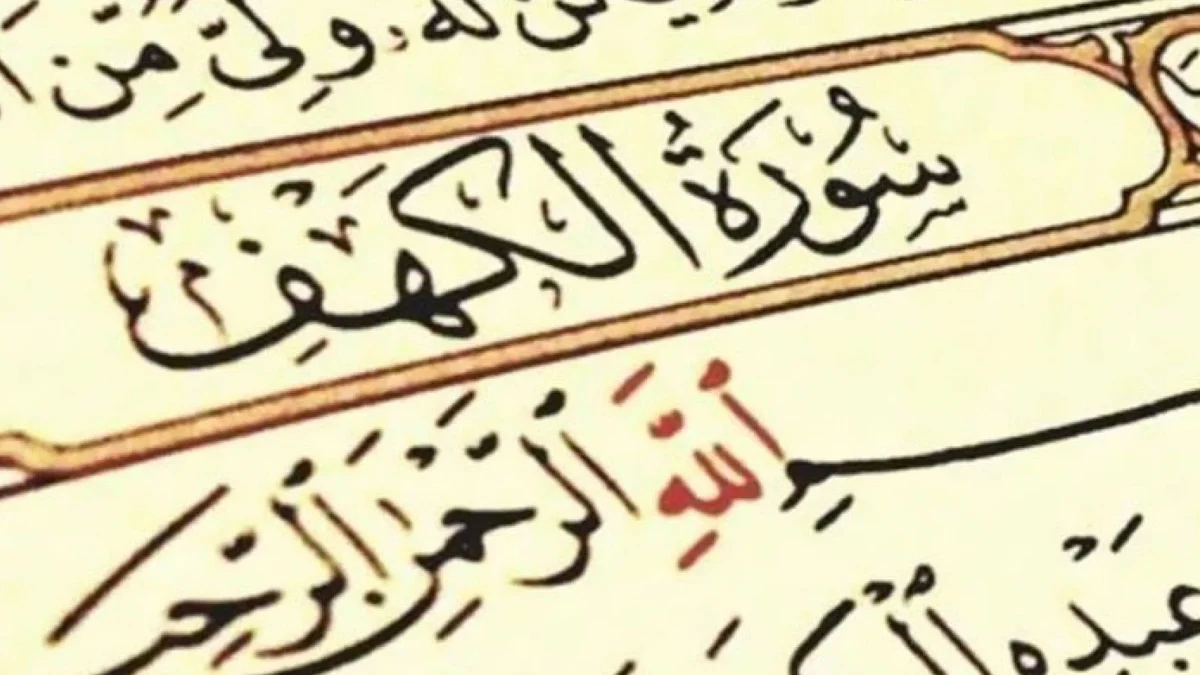 لَّهُۥ وَلِىٌّ مِّنَ
سُورَةُ الْكَهْفِ
بِسْمِ ٱللَّهِ ٱلرَّحْمَٰنِ ٱلرَّحِيمِ
عَبْدِهِ